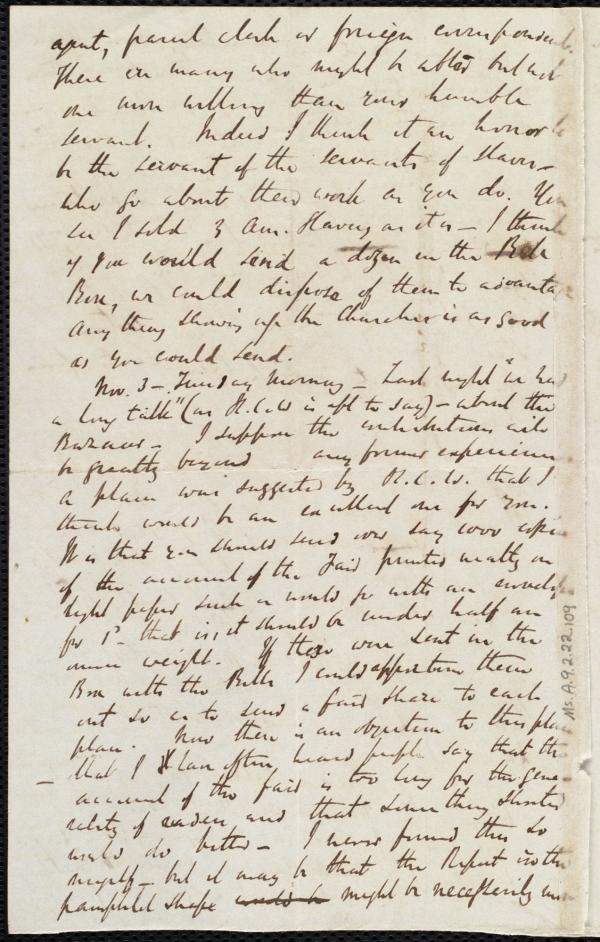 agent, parcel clerk or foreign correspondent.
There are many who might be abler but not
one more willing than your humble
servant. Indeed I think it an honor to
be the servant of the servants of slaves –
who go about their work as you do. You
see I sold 3 Am. Slavery as it is – I think
if you would send a dozen in the
Box, we could dispose of them to advantage
Any thing showing up the Churches is as good
as you could send.
Nov. 3 – Tuesday Morning – Last night "we had
a long talk" (as H.C.W. is apt to say) – about the
Bazaar – I suppose the contributions will
be greatly beyond any former experience
a plan was suggested by H.C.W. that I
think would be an excellent one for you.
It is that you should send over say 1000 copies
of the account of the Fair printed neatly on
light paper such as would go with an envelope
for 1d – that is, it should be under half an
ounce weight. If these were sent in the
Box with the Bells I could apportion them
out so as to send a fair share to each
place. Now there is an objection to this plan
– that I have often heard people say that the
account of the fair is too long for the gene-
rality of readers and that something shorter
would do better – I never found this so
myself – but it may be that the Report in the
pamphlet shape would be might be necessarily
Ms. A.9.2.22.109